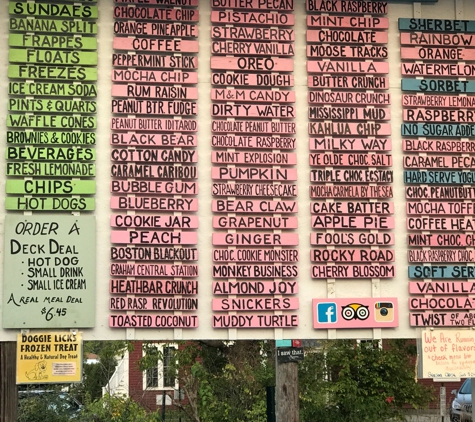 SUNDAES
BANANA SPLIT
FRAPPES
FLOATS
FREEZES
ICE CREAM SODA
PINTS & QUARTS
WAFFLE CONES
BROWNIES & COOKIES
BEVERAGES
FRESH LEMONADE
CHIPS
HOT DOGS
ORDER A
DECK DEAL
· HOT DOG
· SMALL DRINK
· SMALL ICE CREAM
A REAL MEAL DEAL
$6.45
DOGGIE LICKS
FROZEN TREAT
A Healthy & Natural Dog Treat
MAPLE WALNUT
CHOCOLATE CHIP
ORANGE PINEAPPLE
COFFEE
PEPPERMINT STICK
MOCHA CHIP
RUM RAISIN
PEANUT BTR. FUDGE
PEANUT BUTTER IDITAROD
BLACK BEAR
COTTON CANDY
CARAMEL CARIBOU
BUBBLE GUM
BLUEBERRY
COOKIE JAR
PEACH
BOSTON BLACKOUT
GRAHAM CENTRAL STATION
HEATHBAR CRUNCH
RED RASP. REVOLUTION
TOASTED COCONUT
BUTTER PECAN
PISTACHIO
STRAWBERRY
CHERRY VANILLA
OREO
COOKIE DOUGH
M&M CANDY
DIRTY WATER
CHOCOLATE PEANUT BUTTER
CHOCOLATE RASPBERRY
MINT EXPLOSION
PUMPKIN
STRAWBERRY CHEESECAKE
BEAR CLAW
GRAPENUT
GINGER
CHOC. COOKIE MONSTER
MONKEY BUSINESS
ALMOND JOY
SNICKERS
MUDDY TURTLE
I saw that.
BLACK RASPBERRY
MINT CHIP
CHOCOLATE
MOOSE TRACKS
VANILLA
BUTTER CRUNCH
DINOSAUR CRUNCH
MISSISSIPPI MUD
KAHLUA CHIP
MILKY WAY
YE OLDE CHOC. SALT
TRIPLE CHOC ECSTACY
MOCHA CARMELA BY THE SEA
CAKE BATTER
APPLE PIE
FOOL'S GOLD
ROCKY ROAD
CHERRY BLOSSOM
f
SHERBET
RAINBOW
ORANGE
WATERMELO
SORBET
STRAWBERRY LEMONA
RASPBERR
NO SUGAR ADDE
BLACK RASPBERR
CARAMEL PECA
HARD SERVE YOGU
CHOC PEANUT
MOCHA TOFF
COFFEE HEA
MINT CHOC
BLACK RASPBERRY CHOC
SOFT SER
VANILLA
CHOCOLA
TWIST OF AB
We Are Running
out of flavor